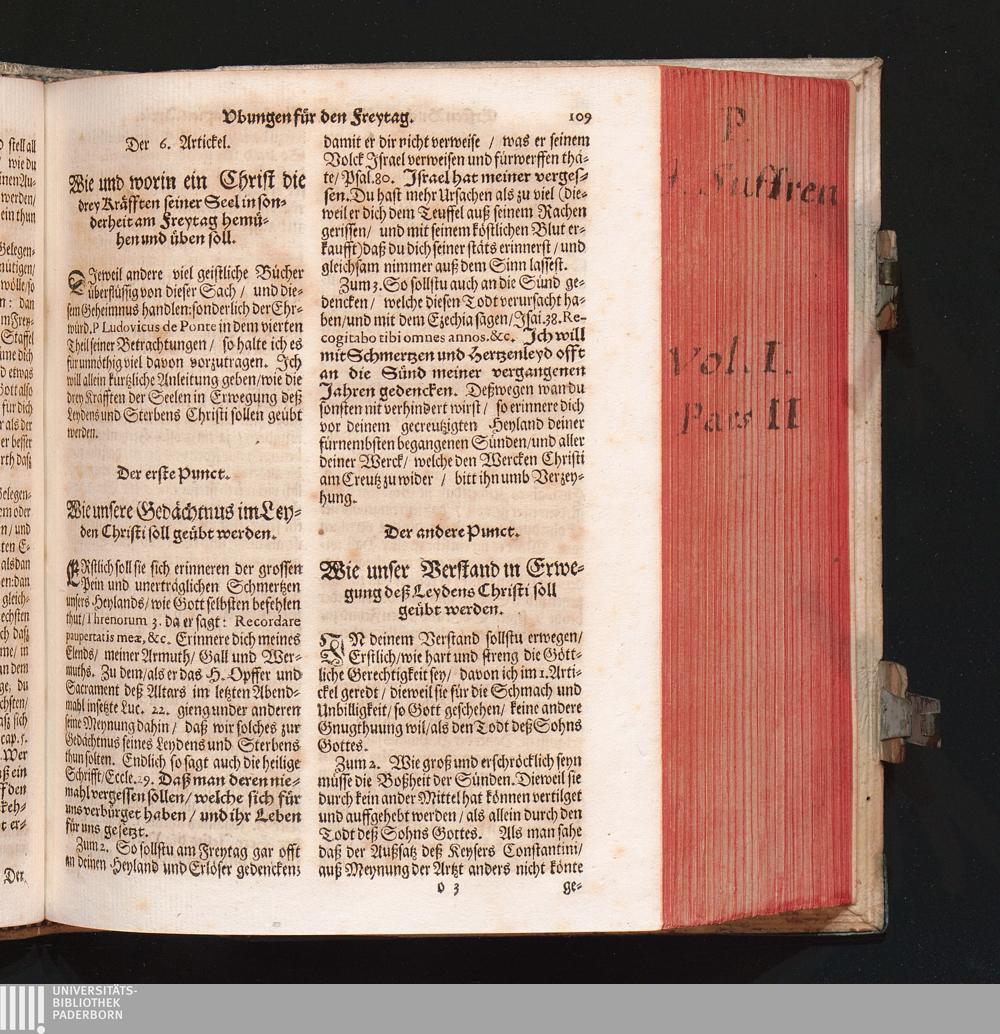 Ubungen für den Freytag. 109
Der 6. Artickel.
Wie und worin ein Christ die
drey Kräfften seiner Seel in son-
derheit am Freytag bemü-
hen und üben soll.
DJeweil andere viel geistliche Bücher
überflüssig von dieser Sach / und die-
sem Geheimnus handlen: sonderlich der Ehr-
würd. P Ludovicus de Ponte in dem vierten
Theil seiner Betrachtungen / so halte ich es
für unnöthig viel davon vorzutragen. Ich
will allein kurtzliche Anleitung geben/wie die
drey Krafften der Seelen in Erwegung deß
Leydens und Sterbens Christi sollen geübt
werden.
Der erste Punct.
Wie unsere Gedächtnus im Ley-
den Christi soll geübt werden.
ERstlich soll sie sich erinneren der grossen
Pein und unerträglichen Schmertzen
unsers Heylands/ wie Gott selbsten befehlen
thut/Threnorum 3. da er sagt: Recordare
paupertatis meæ, &c. Erinnere dich meines
Elends/ meiner Armuth/ Gall und Wer-
muths. Zu dem/als er das H. Opffer und
Sacrament deß Altars im letzten Abend-
mahl insetzte Luc. 22. gieng under anderen
seine Meynung dahin / daß wir solches zur
Gedächtnus seines Leydens und Sterbens
thun solten. Endlich so sagt auch die heilige
Schrifft/Eccle. 29. Daß man deren nie-
mahl vergessen sollen/ welche sich für
uns verbürget haben / und ihr Leben
für uns gesetzt.
Zum 2. So sollstu am Freytag gar offt
an deinen Heyland und Erlöser gedencken;
damit er dir nicht verweise / was er seinem
Volck Israel verweisen und fürwerffen thä-
te/Psal. 80. Israel hat meiner verges-
sen. Du hast mehr Ursachen als zu viel (die-
weil er dich dem Teuffel auß seinem Rachen
gerissen / und mit seinem köstlichen Blut er-
kaufft) daß du dich seiner stäts erinnerst / und
gleichsam nimmer auß dem Sinn lassest.
Zum 3. So sollstu auch an die Sünd ge-
dencken / welche diesen Todt verursacht ha-
ben/und mit dem Ezechia sagen/Isai. 38. Re-
cogitabo tibi omnes annos. &c. Ich will
mit Schmertzen und Hertzenleyd offt
an die Sünd meiner vergangenen
Jahren gedencken. Deßwegen wan du
sonsten nit verhindert wirst / so erinnere dich
vor deinem gecreutzigten Heyland deiner
fürnembsten begangenen Sünden/und aller
deiner Werck/ welche den Wercken Christi
am Creutz zu wider / bitt ihn umb Verzey-
hung.
Der andere Punct.
Wie unser Verstand in Erwe-
gung deß Leydens Christi soll
geübt werden.
IN deinem Verstand sollstu erwegen/
Erstlich/wie hart und streng die Gött-
liche Gerechtigkeit sey/ davon ich im 1. Arti-
ckel geredt / dieweil sie für die Schmach und
Unbilligkeit/ so Gott geschehen/ keine andere
Gnugthuung wil/als den Todt deß Sohns
Gottes.
Zum 2. Wie groß und erschröcklich seyn
müsse die Boßheit der Sünden. Dieweil sie
durch kein ander Mittel hat können vertilget
und auffgehebt werden/ als allein durch den
Todt deß Sohns Gottes. Als man sahe
daß der Außsatz deß Keysers Constantini/
auß Meynung der Artzt anders nicht könte
O 3 ge-
P.
Suffren
Vol. I.
Pars II
Der
UNIVERSITÄTS-
BIBLIOTHEK
PADERBORN